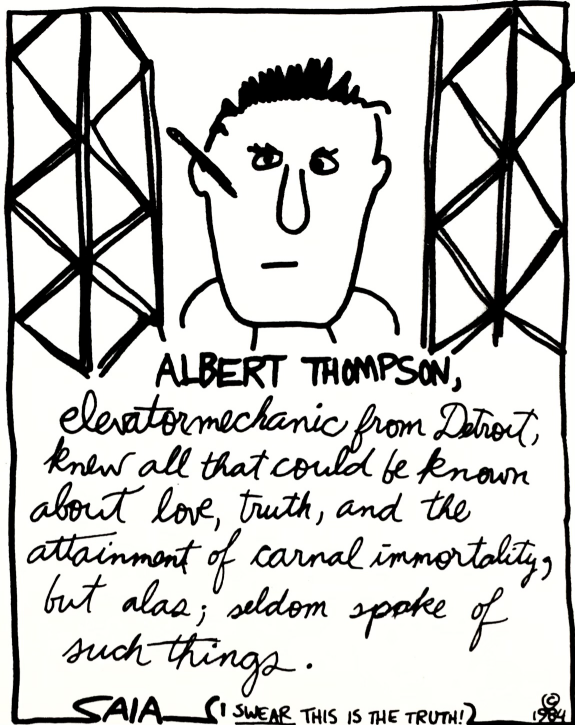 ALBERT THOMPSON,
elevator mechanic from Detroit,
knew all that could be known
about love, truth, and the
attainment of carnal immortality,
but alas; seldom spoke of
such things.
SAIA (I SWEAR THIS IS THE TRUTH!) © 1984